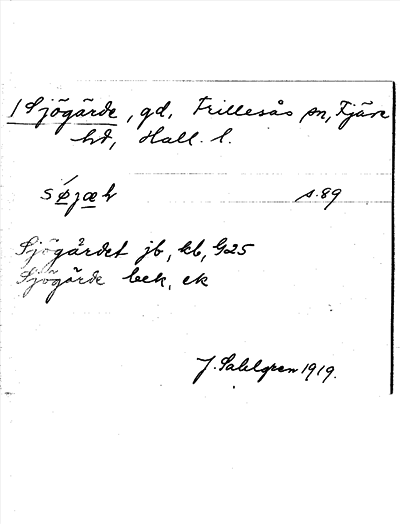 1 Sjögärde, gd, Frillesås sn, Fjäre
hd, Hall. l.
s. 89
Sjögärdet jb, kb, G25
Sjögärde bek, ek
J. Sahlgren 1919.